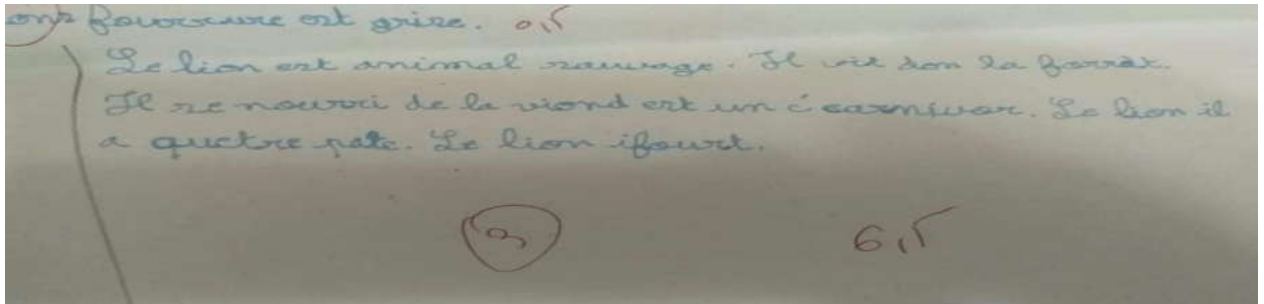 ons fourrure est grise. 0,5
Le lion est animal sauvage. Il vit don la forrêt.
Il se nourri de la viond est un é carnivor. Le lion il
a quctre pate. Le lion ifourt.
3 6,5